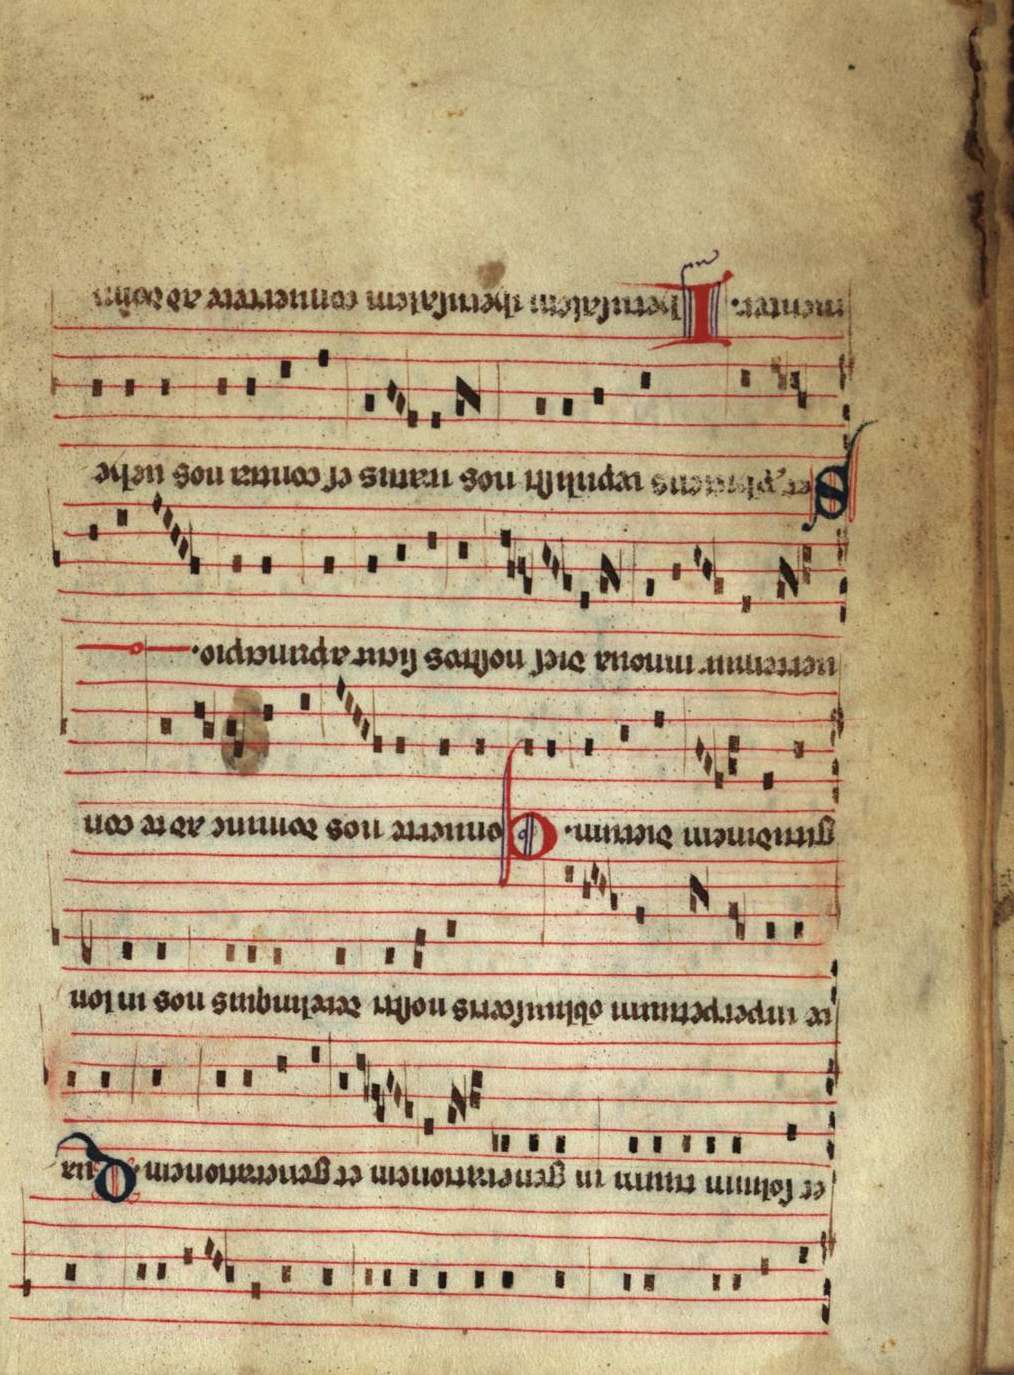 et solium tuum in generationem et generationem. Qua
re inperpetuum obliuisceris nostri derelinquis nos in lon
gitudinem dierum. Conuerte nos domine ad te con
uertemur innoua dies nostros sicut a principio.
Set proiciens reppulisti nos iratus es contra nos uehe
menter. Iherusalem iherusalem conuertere ad dominum